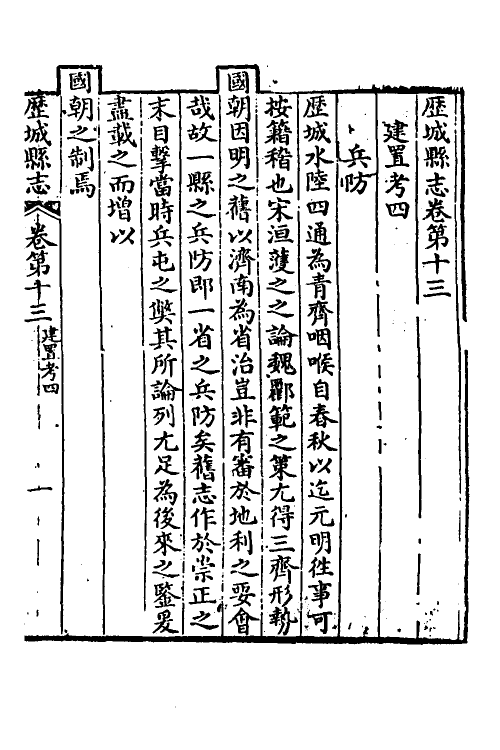 歷城縣志卷第十三
建置考四
兵防
歷城水陸四通為青齊咽喉自春秋以迄元明徃事可
按籍稽也宋洹護之之論魏酈範之策尤得三齊形勢
國朝因明之舊以濟南為省治豈非有審於地利之要會
哉故一縣之兵防即一省之兵防矣舊志作於崇正之
末目擊當時兵屯之獘其所論列尤足為後來之鑒爰
盡載之而增以
國朝之制焉
歷城縣志 卷第十三 建置考四 一